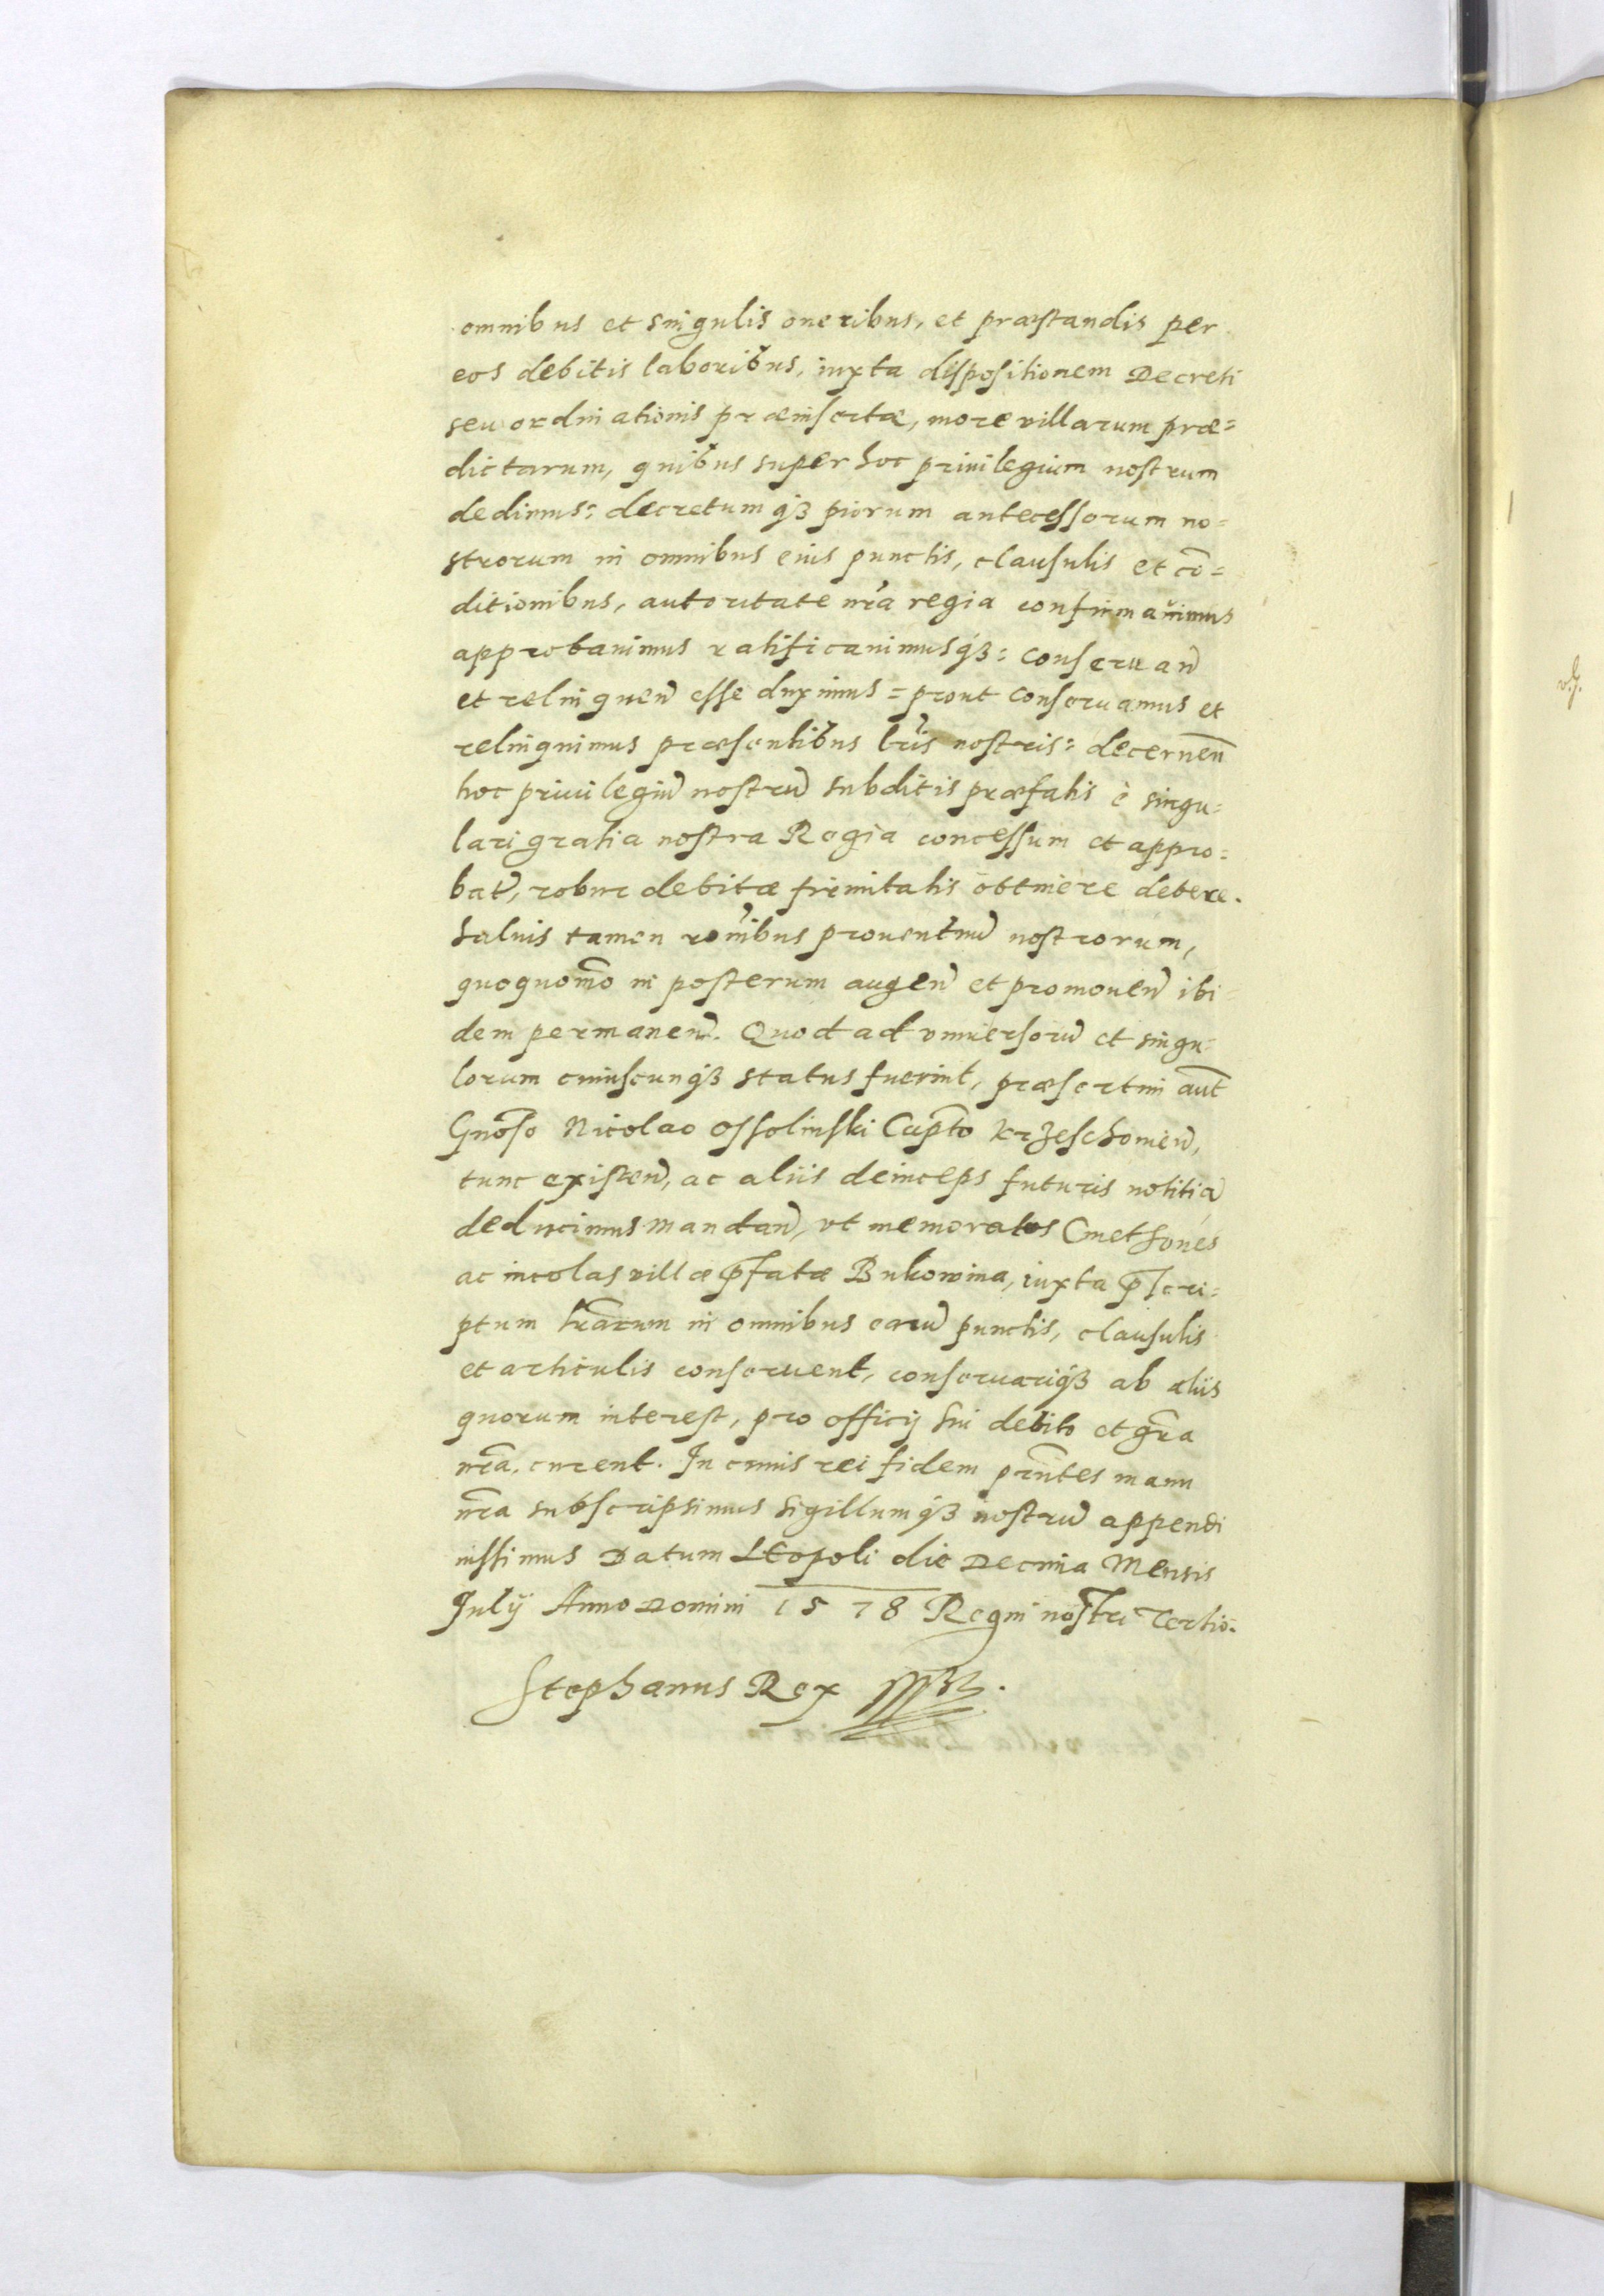 omnibus et singulis oneribus, et præstandis per
eos debitis laboribus, iuxta dispositionem Decreti
seu ordinationis præinsertæ, more villarum præ=
dictarum, quibus super hoc priuilegium nostrum
dedimus: decretumqꝫ piorum antecessorum no=
strorum in omnibus eius punctis, clausulis et cō=
ditionibus, autoritate nr̃a regia confirmauimus
approbauimus ratificauimusqꝫ: conseruan̄
et relinquen̄ esse duximus = prout conseruamus et
relinquimus præsentibus lr̃is nostris: decernen̄
hoc priuilegiū nostrū subditis præfatis è singu=
lari gratia nostra Regia concessum et appro=
batū, robur debitæ firmitatis obtinere debere.
Saluis tamen ro̅nibus prouentuū nostrorum,
quoquomo̅ in posterum augen̄ et promouen̄ ibi=
dem permanen̄. Quod ad vniuersorū et singu=
lorum cuiuscunqꝫ status fuerint, præsertim aut̄
Gno̅so Nicolao Ossolinski Capt̅o Krzeschouien̄,
tunc existen̄, ac aliis deinceps futuris notitiā
deducimus mandan̄, vt memoratos Cmethones
ac incolas villæ p̄fatæ Bukowina, iuxta p̄scri=
ptum lr̃arum in omnibus earū punctis, clausulis
et articulis conseruent, conseruariqꝫ ab aliis
quorum interest, pro officij sui debito et gr̃a
nr̃a, curent. In cuius rei fidem prn̄tes manu
nr̃a subscripsimus sigillumqꝫ nostrū appendi
iussimus Datum LEopoli die Decima Mensis
Julij Anno Domini 1578 Regni nostri Tertio.
Stephanus Rex